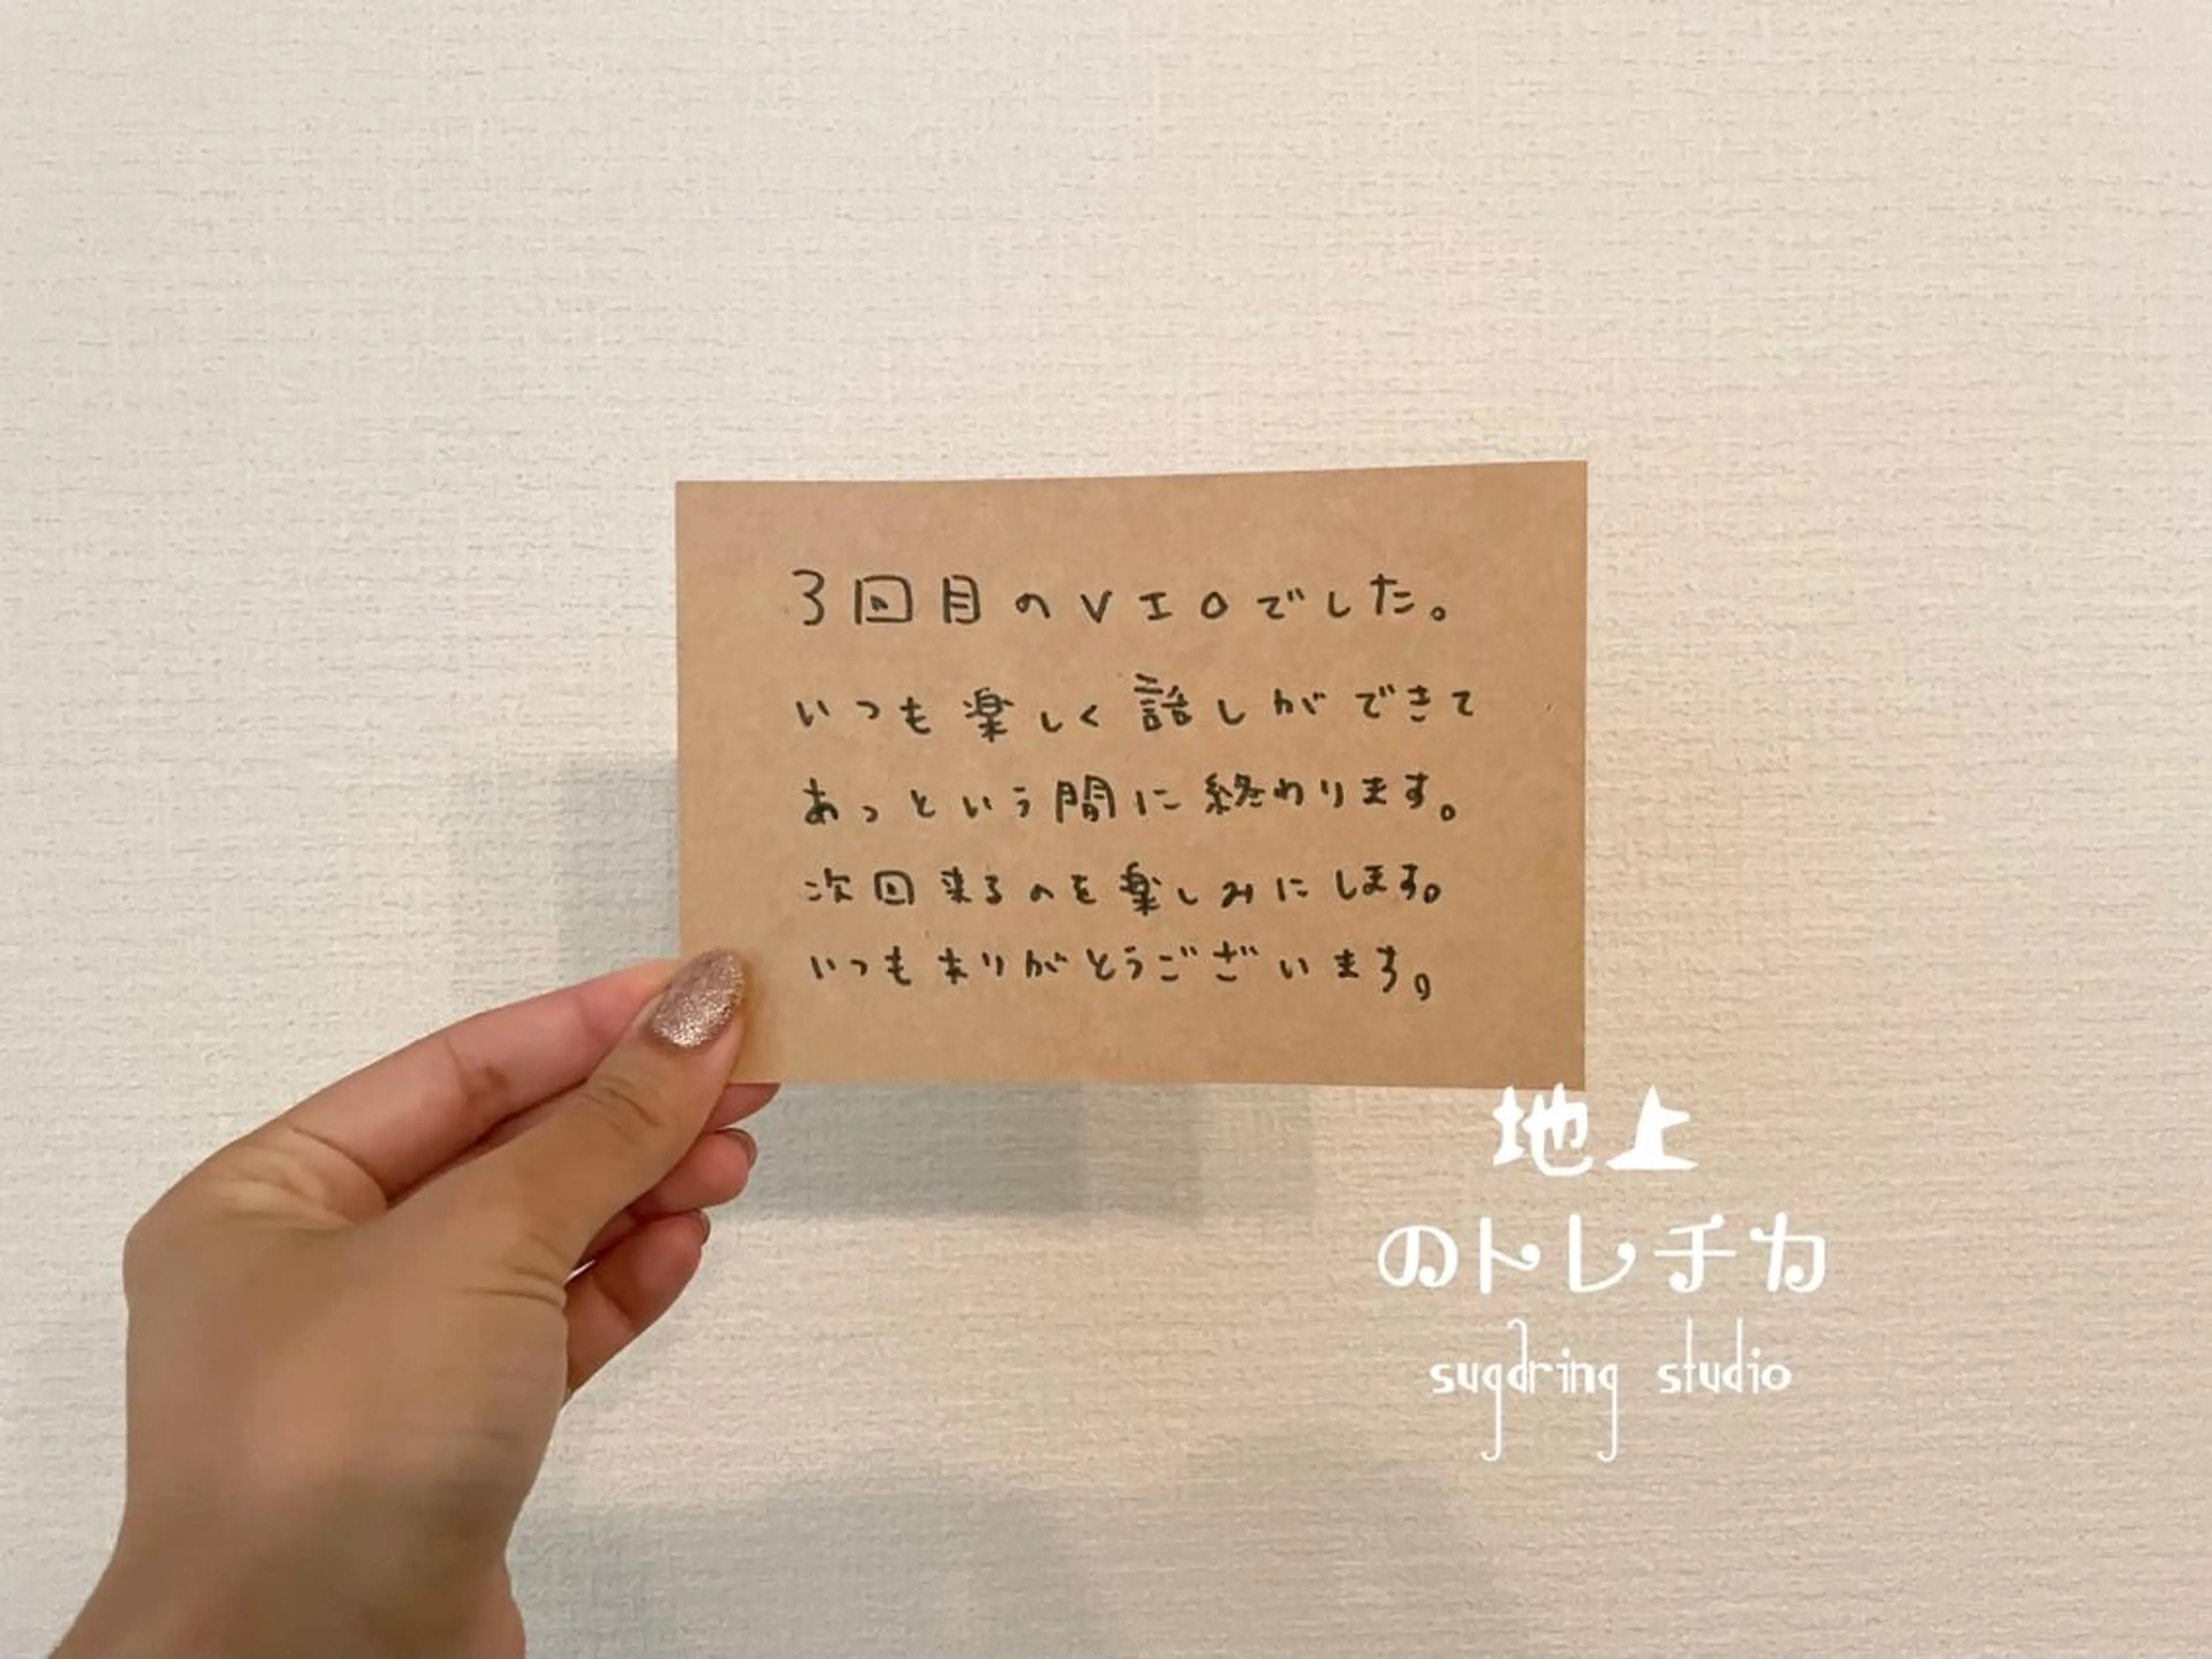 3回目のVIOでした。
いつも楽しく話しができて
あっという間に終わります。
次回来るのを楽しみにします。
いつもありがとうございます。
地上
のトレチカ
sugaring studio